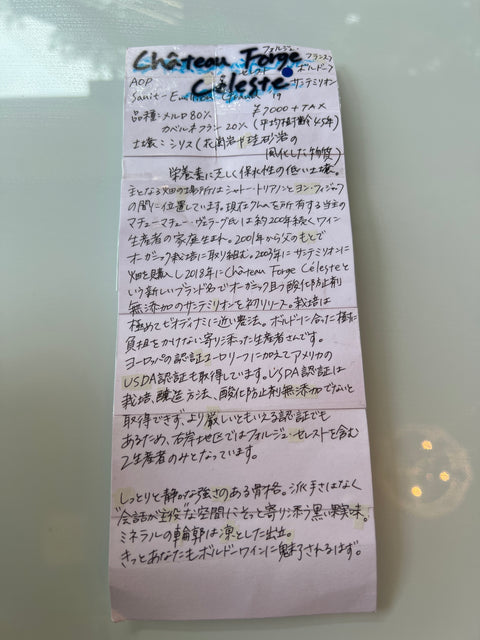 フォルジュ フランス
Château Forge ボルドー
セレスト サンテミリオン
Céleste
AOP
Sanit-Emilion Grand '19
品種:メルロ80% ¥7000+TAX
カベルネフラン20% (平均樹齢45年)
土壌:シリス(花崗岩や珪砂岩の
風化した物質)
栄養素に乏しく保水性の低い土壌。
主となる畑の場所はシャトー・トリアノンとヨン・フィジャック
の間に位置しています。現在クロを所有する当主の
マチュー・マチュー・ヴェラーグ氏は約200年続くワイン
生産者の家庭生まれ。2001年から父のもとで
オーガニック栽培に取り組む。2003年にサンテミリオンに
畑を購入し2018年にChâteau Forge Célesteと
いう新しいブランド名でオーガニック且つ酸化防止剤
無添加のサンテミリオンを初リリース。栽培は
極めてビオディナミに近い農法。ボルドーに合った様に
負担をかけない寄り添った生産者さんです。
ヨーロッパの認証ユーリーフに加えてアメリカの
USDA認証も取得しています。USDA認証は
栽培、醸造方法、酸化防止剤無添加でないと
取得できず、より厳しいともいえる認証でも
あるため、右岸地区ではフォルジュ・セレストを含む
2生産者のみとなっています。
しっとりと静かな強さのある骨格。派手さはなく
"会話が主役"な空間にそっと寄り添う黒い果実味。
ミネラルの輪郭は凛とした出立。
きっとあなたもボルドーワインに魅了されるはず。